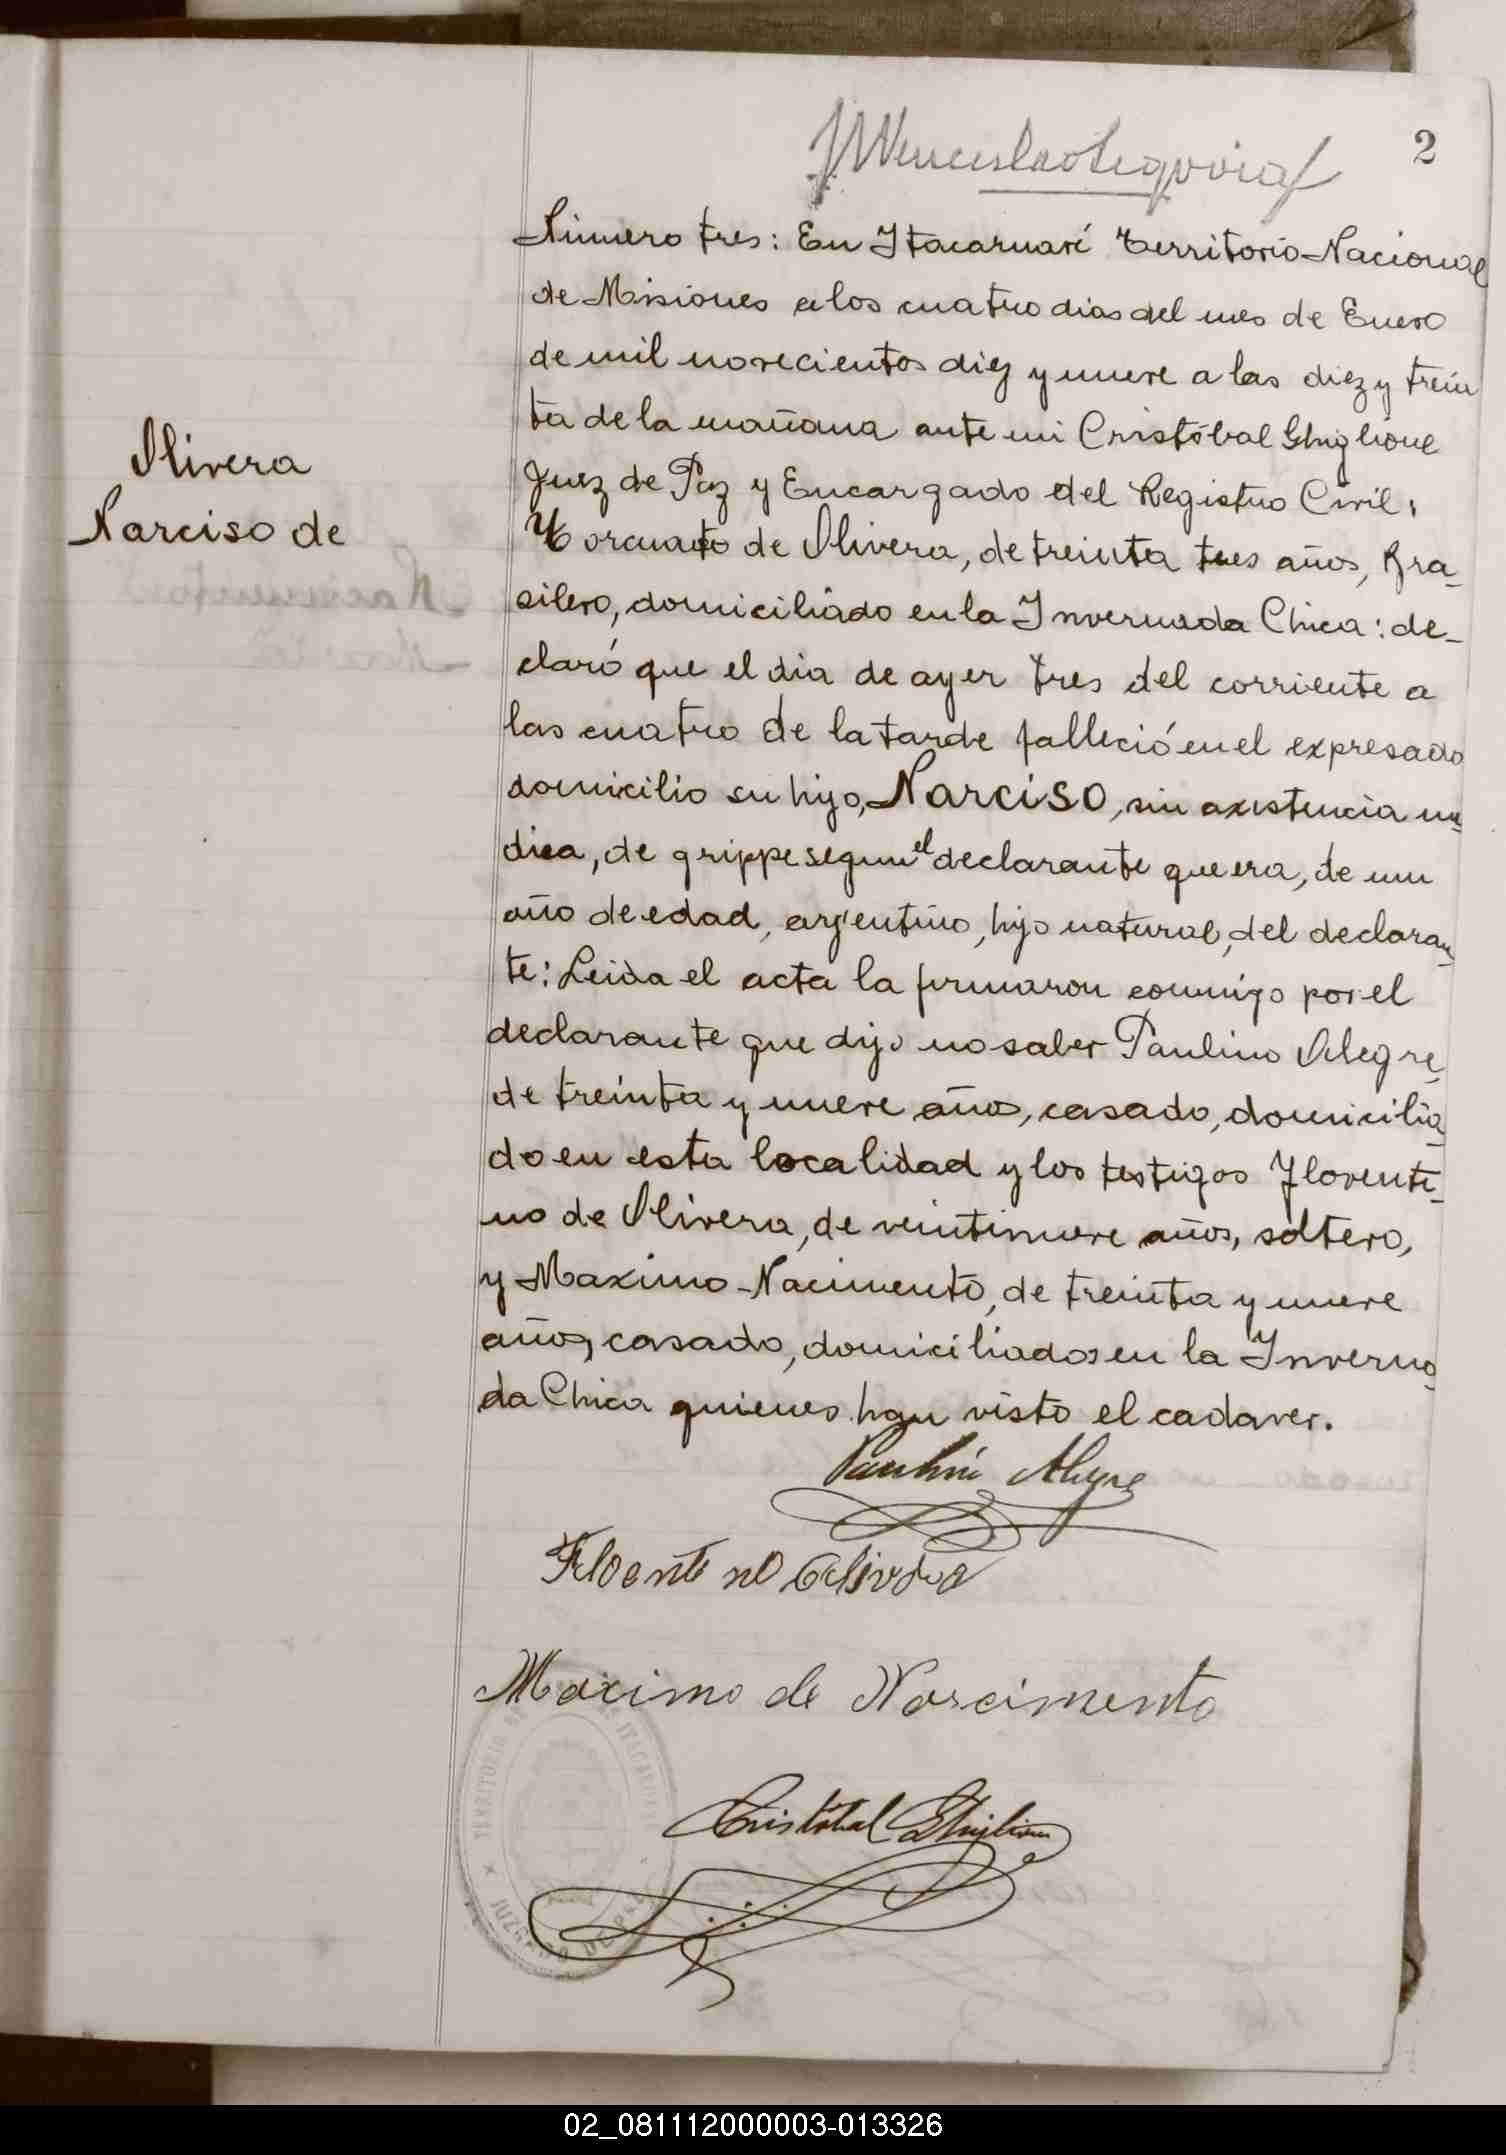 2
Número tres: En Itacaruaré Territorio Nacional
de Misiones a los cuatro dias del mes de Enero
de mil novecientos diez y nueve a las diez y trein
ta de la mañana ante mi Cristóbal Ghiglione
Juez de Paz y Encargado del Registro Civil,
Torcuato de Olivera, de treinta tres años, Bra-
silero, domiciliado en la Invernada Chica: de-
claró que el dia de ayer tres del corriente a
las cuatro de la tarde falleció en el expresado
domicilio su hijo, Narciso, sin axistencia me-
dica, de grippe segun el declarante que era, de un
año de edad, argentino, hijo natural, del declaran-
te: Leida el acta la firmaron conmigo por el
declarante que dijo no saber Paulino Alegre,
de treinta y nueve años, casado, domicilia-
do en esta localidad y los testigos Florenti-
no de Olivera, de veintinueve años, soltero,
y Maximo Nacimento, de treinta y nueve
años, casado, domiciliados en la Inverna-
da Chica quienes han visto el cadaver.
Olivera
Narciso de
Paulino Alegre
Floentino Olivera
Maximo de Norcimento
Cristóbal Ghiglione
TERRITORIO DE ITACARUARE
JUZGADO DE PAZ
02_081112000003-013326